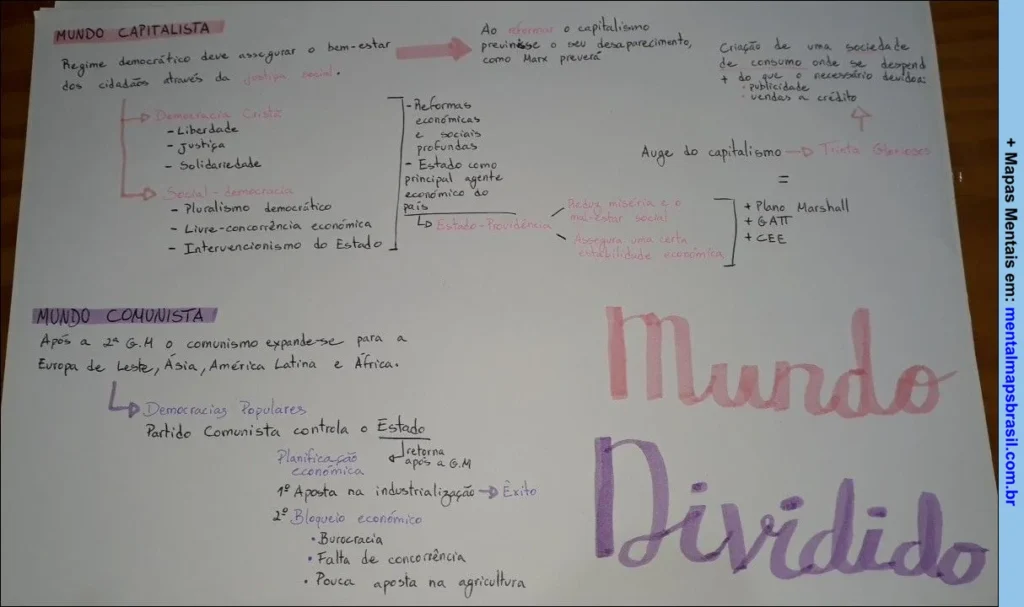 MUNDO CAPITALISTA
Regime democrático deve assegurar o bem-estar
dos cidadãos através da justiça social.
Ao reformar o capitalismo
previnisse o seu desaparecimento,
como Marx preverá
Criação de uma sociedade
de consumo onde se despend
+ do que o necessário devido a:
· publicidade
· vendas a crédito
Democracia Cristã
- Liberdade
- Justiça
- Solidariedade
Social-democracia
- Pluralismo democrático
- Livre-concorrência económica
- Intervencionismo do Estado
- Reformas
económicas
e sociais
profundas
- Estado como
principal agente
económico do
país
Estado-Providência
Reduz miséria e o
mal-estar social
Assegura uma certa
estabilidade económica
Auge do capitalismo → Trinta Gloriosos
=
+ Plano Marshall
+ GATT
+ CEE
MUNDO COMUNISTA
Após a 2ª G.M o comunismo expande-se para a
Europa de Leste, Ásia, América Latina e África.
Democracias Populares
Partido Comunista controla o Estado
retorna
após a G.M
Planificação
económica
1º Aposta na industrialização → Êxito
2º Bloqueio económico
· Burocracia
· Falta de concorrência
· Pouca aposta na agricultura
Mundo
Dividido
+ Mapas Mentais em: mentalmapsbrasil.com.br